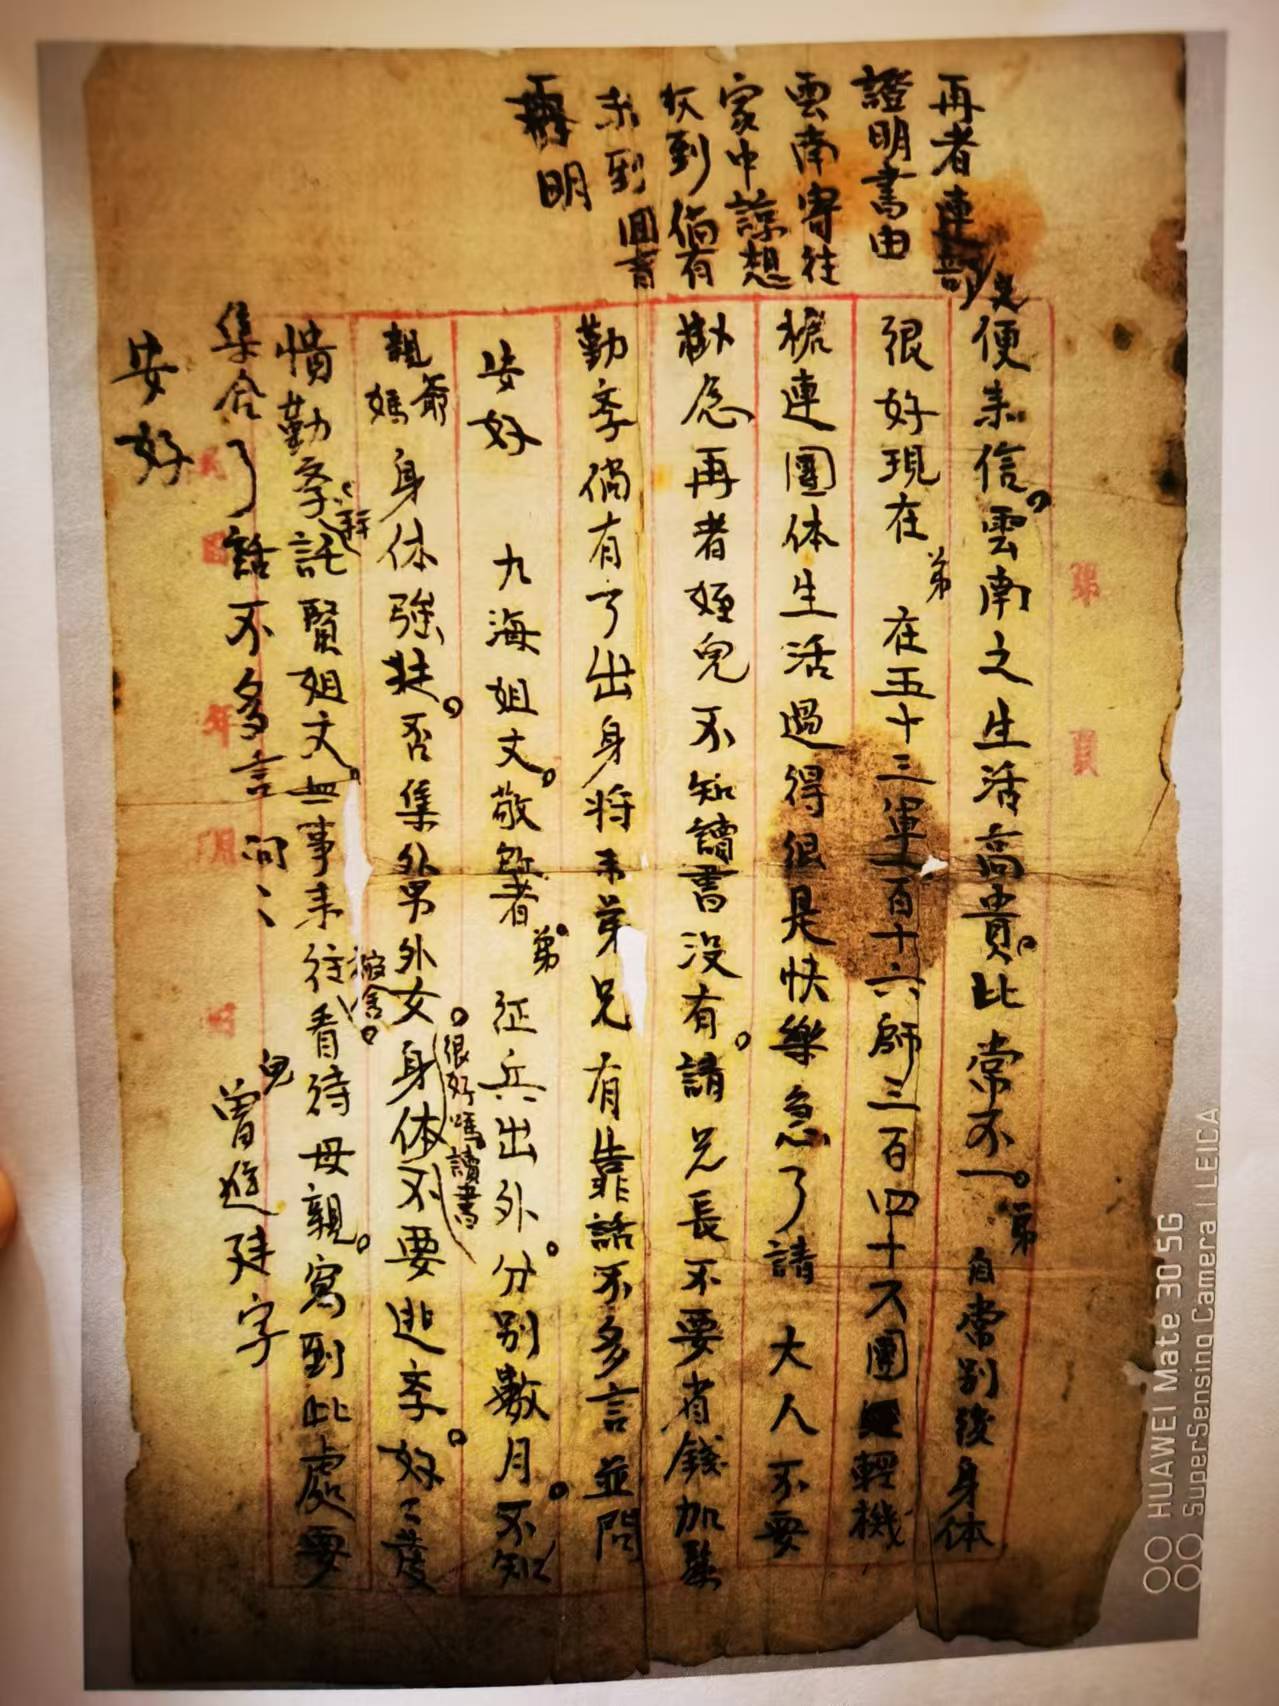 再者連部
證明書由
雲南寄往
家中諒想
收到倘有
未到回音
再明
第 頁
便來信。雲南之生活高貴。比常不一。弟自常別後身体
很好現在弟在五十三軍一百十六師三百四十八團輕機
槍連團体生活過得很是快樂急了請大人不要
掛念再者姪兒不知讀書沒有。請兄長不要省錢加緊
勤孝倘有了出身將來弟兄有靠話不多言並問
安好 九海姐丈。敬啟者弟。征兵出外。分別數月。不知
親爺媽身体強壯。否集外男外女。很好嗎讀書身体不要逃孝。好々
憤勤孝託賢姐丈。無事來往看待母親。寫到此處要
集合了話不多言 問〻
兒曾進廷字
安好
年 月
HUAWEI Mate 30 5G
SuperSensing Camera | LEICA